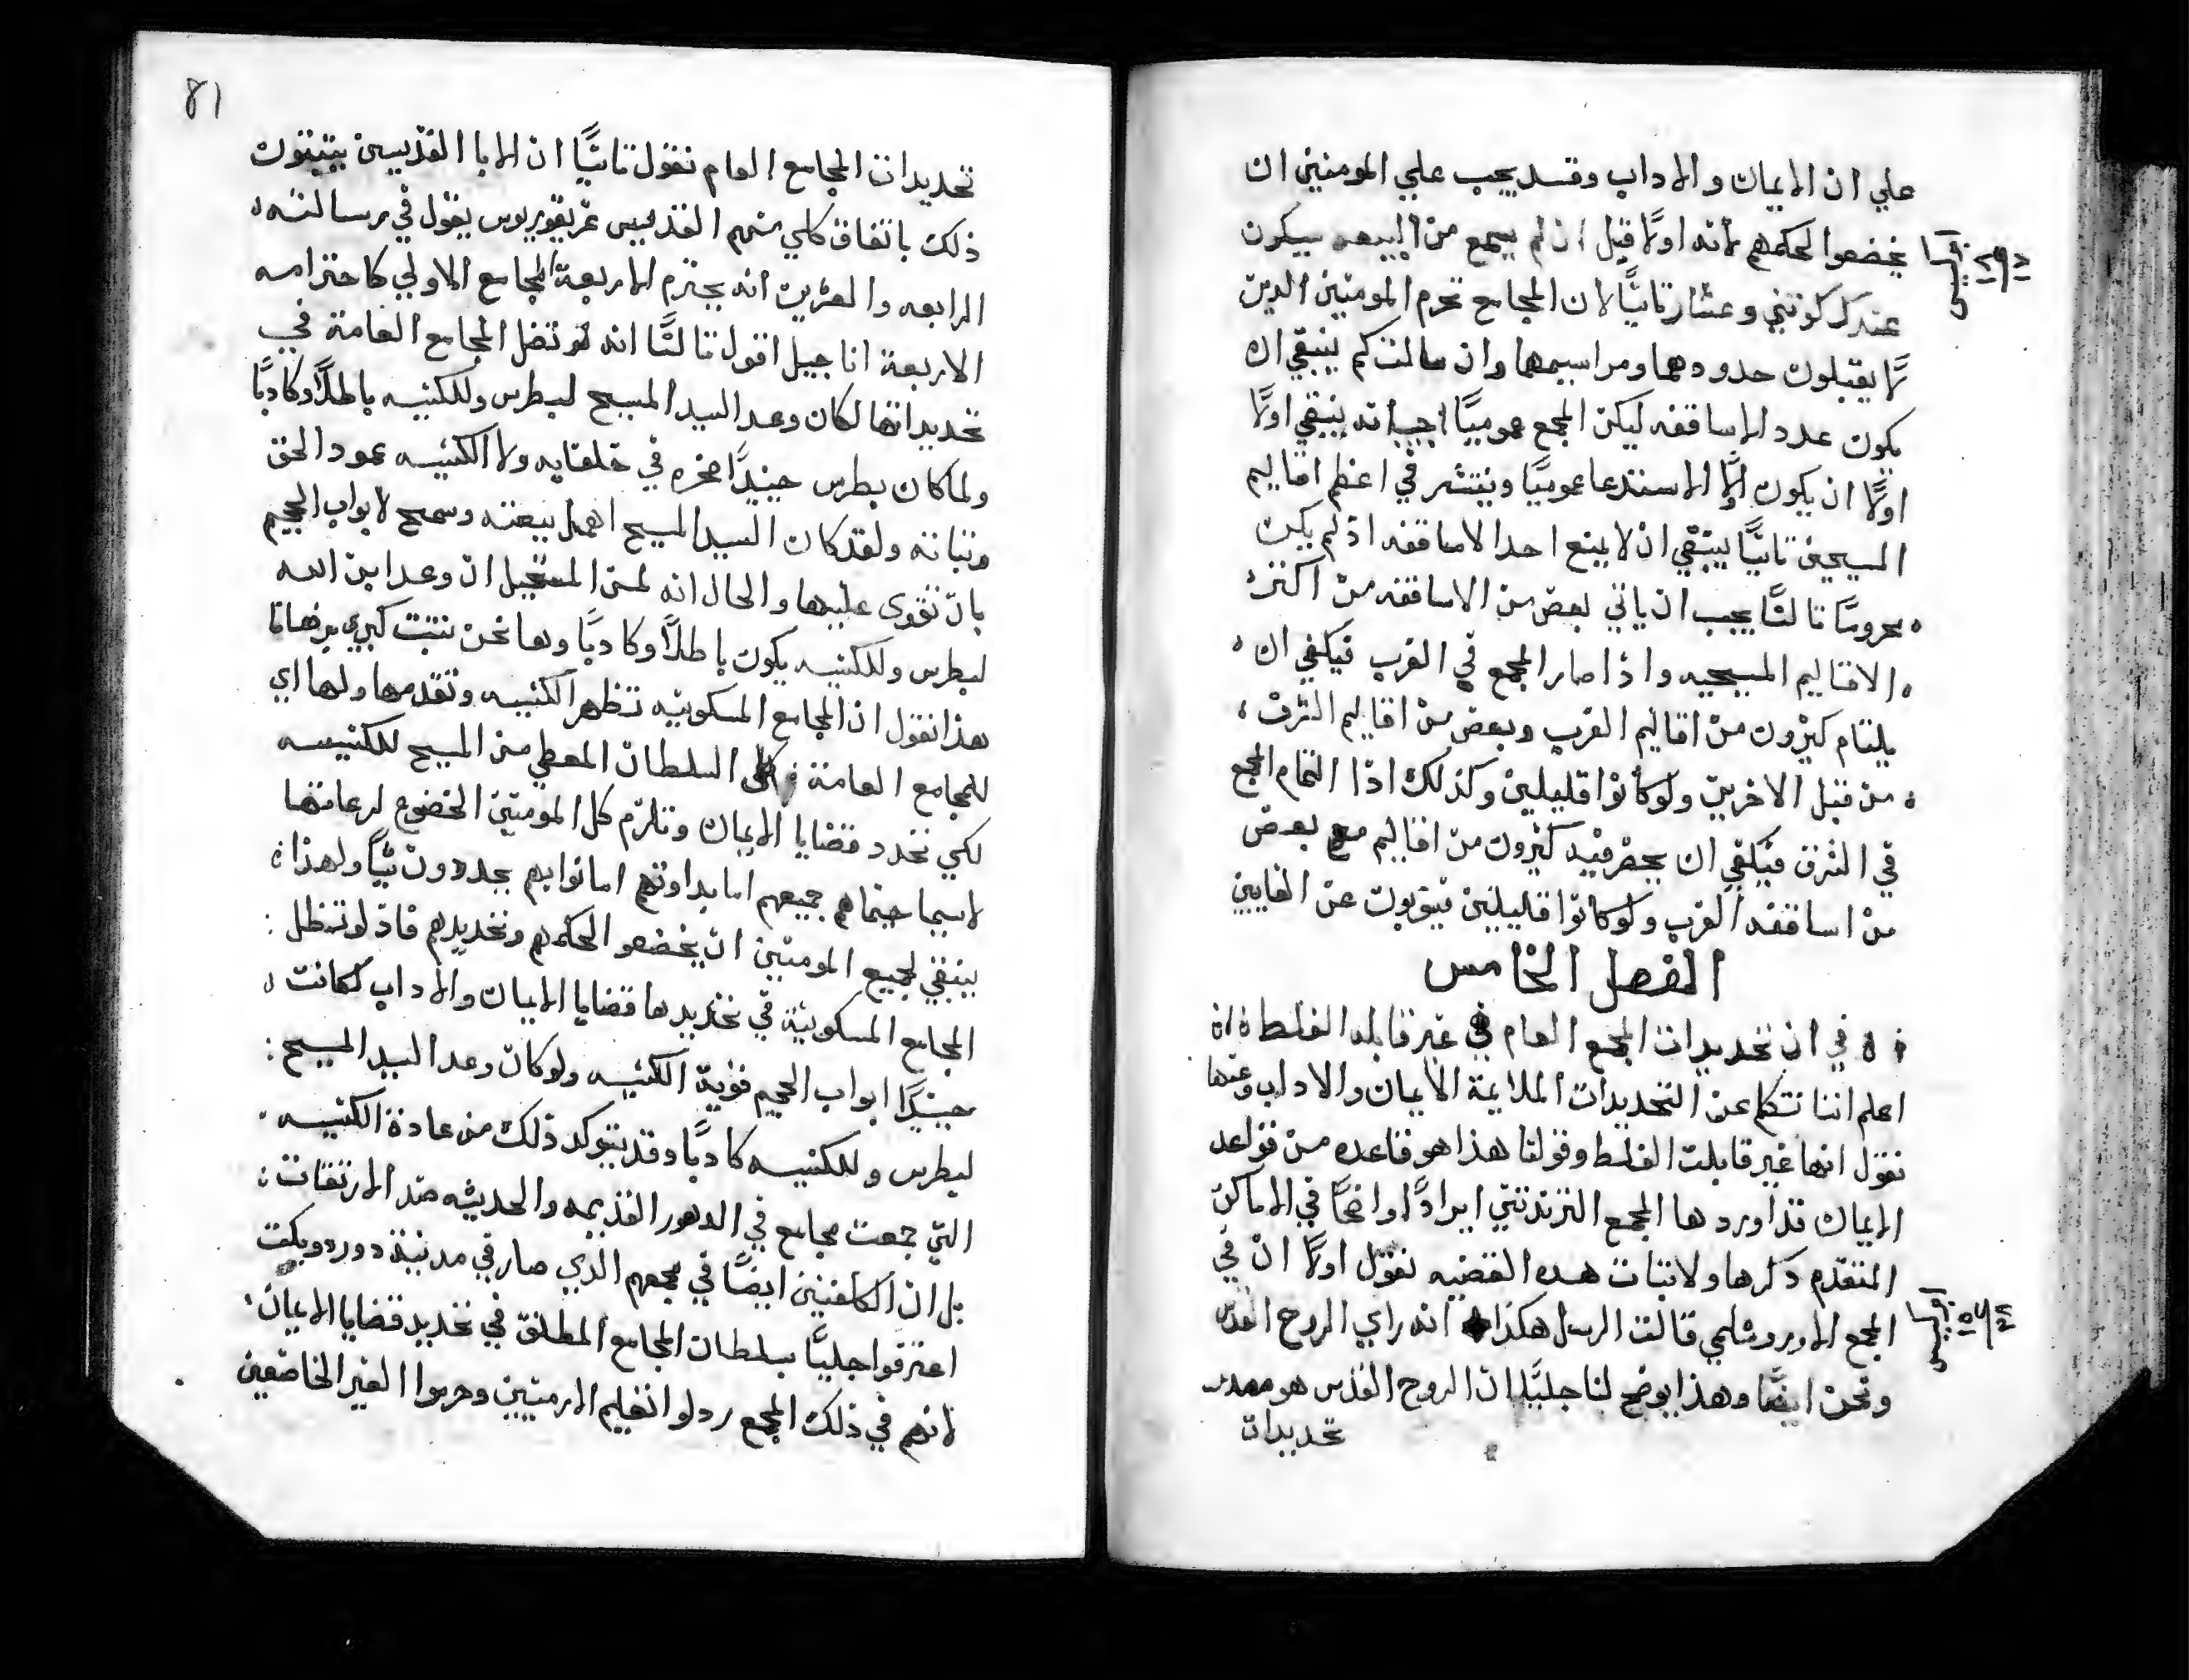 علي ان الايمان والاداب وقد يجب علي المومنين ان
يخضعوا لحكمهم لانه اولًا قيل ان لم يسمع من البيعه سيكون
عندك كوتني وعشار تانيًا لان المجامع تحرم المومنين الدين
لا يقبلون حدودها ومراسيمها وان سالتكم ينبقي ان
يكون عدد الاساقفه ليكن المجمع عموميًا اجيب انه ينبقي اولًا
اولًا ان يكون الاستدعا عموميًا وينتشر في اعظم اقاليم
المسيحين تانيًا ينبقي ان لا يمنع احد الاساقفه اذ لم يكن
محرومًا تالتًا يجب ان ياتي بعض من الاساقفه من اكتر
الاقاليم المسيحيه واذا صار المجمع في الغرب فيكفي ان
يلتام كثيرون من اقاليم الغرب وبعض من اقاليم الشرق
من قبل الاخرين ولو كانوا قليلين وكذلك اذا التام المجمع
في الشرق فيكفي ان يحضر فيه كثيرون من اقاليم مع بعض
من اساقفه الغرب ولو كانوا قليلين فينوبون عن الغايبين
الفصل الخامس
في ان تحديدات المجمع العام في غير قابله الغلط
اعلم اننا نتكلم عن التحديدات الملايمة الايمان والاداب وعنها
نقول انها غير قابلت الغلط وقولنا هذا هو قاعده من قواعد
الايمان قد اوردها المجمع التريدنتني ايرادًا واضحًا في الاماكن
المتقدم دكرها ولاتبات هده القضيه نقول اولًا ان في
المجمع الاوروشليمي قالت الرسل هكذا انه راي الروح القدس
ونحن ايضًا وهذا يوضح لنا جليًا ان الروح القدس هو
تحديدات
81
تحديدات المجامع العام نقول تانيًا ان الابا القديسين يتبتون
ذلك باتفاق كلي منهم القديس غريغوريوس يقول في رسالته
الرابعه والعشرين انه يحترم الاربعة المجامع الاولي كاحترامه
الاربعة اناجيل اقول تالتًا انه لو تضل المجامع العامة في
تحديداتها لكان وعد السيد المسيح لبطرس وللكنيسه باطلًا وكادبًا
ولما كان بطرس حينيدًا صخره في خلفايه ولا الكنيسه عمود الحق
وتباته ولقد كان السيد المسيح اهمل بيعته وسمح لابواب الجحيم
بان تقوى عليها والحال انه لمن المستحيل ان وعد ابن الله
لبطرس وللكنيسه يكون باطلًا وكادبًا وها نحن نتبت كبرى برهاننا
هذا نقول ان المجامع المسكونيه تظهر الكنيسه وتقدمها ولها اي
للمجامع العامة كلي السلطان المعطي من المسيح للكنيسه
لكي تحدد قضايا الايمان وتلزم كل المومنين الخضوع لرعاتها
لاسيما حيتماهم جميعهم اما بداوتهم اما نوابهم يحددون شيًا ولهذا
ينبقي لجميع المومنين ان يخضعوا لحكمهم وتحديدهم فاذ لو تضل
المجامع المسكونية في تحديدها قضايا الايمان والاداب لكانت
حينيدًا ابواب الجحيم قوية الكنيسه ولو كان وعد السيد المسيح
لبطرس وللكنيسه كادبًا وقد يتوكد ذلك من عادة الكنيسه
التي جمعت مجامع في الدهور القديمه والحديثه ضد الارتقات
بل ان الكلفنين ايضًا في مجمعهم الذي صار في مدينة دوردويكت
اعترفوا جليًا بسلطان المجامع المطلق في تحديد قضايا الايمان
لانهم في ذلك المجمع ردلوا تعليم الارمنيين وحرموا الغير الخاضعين